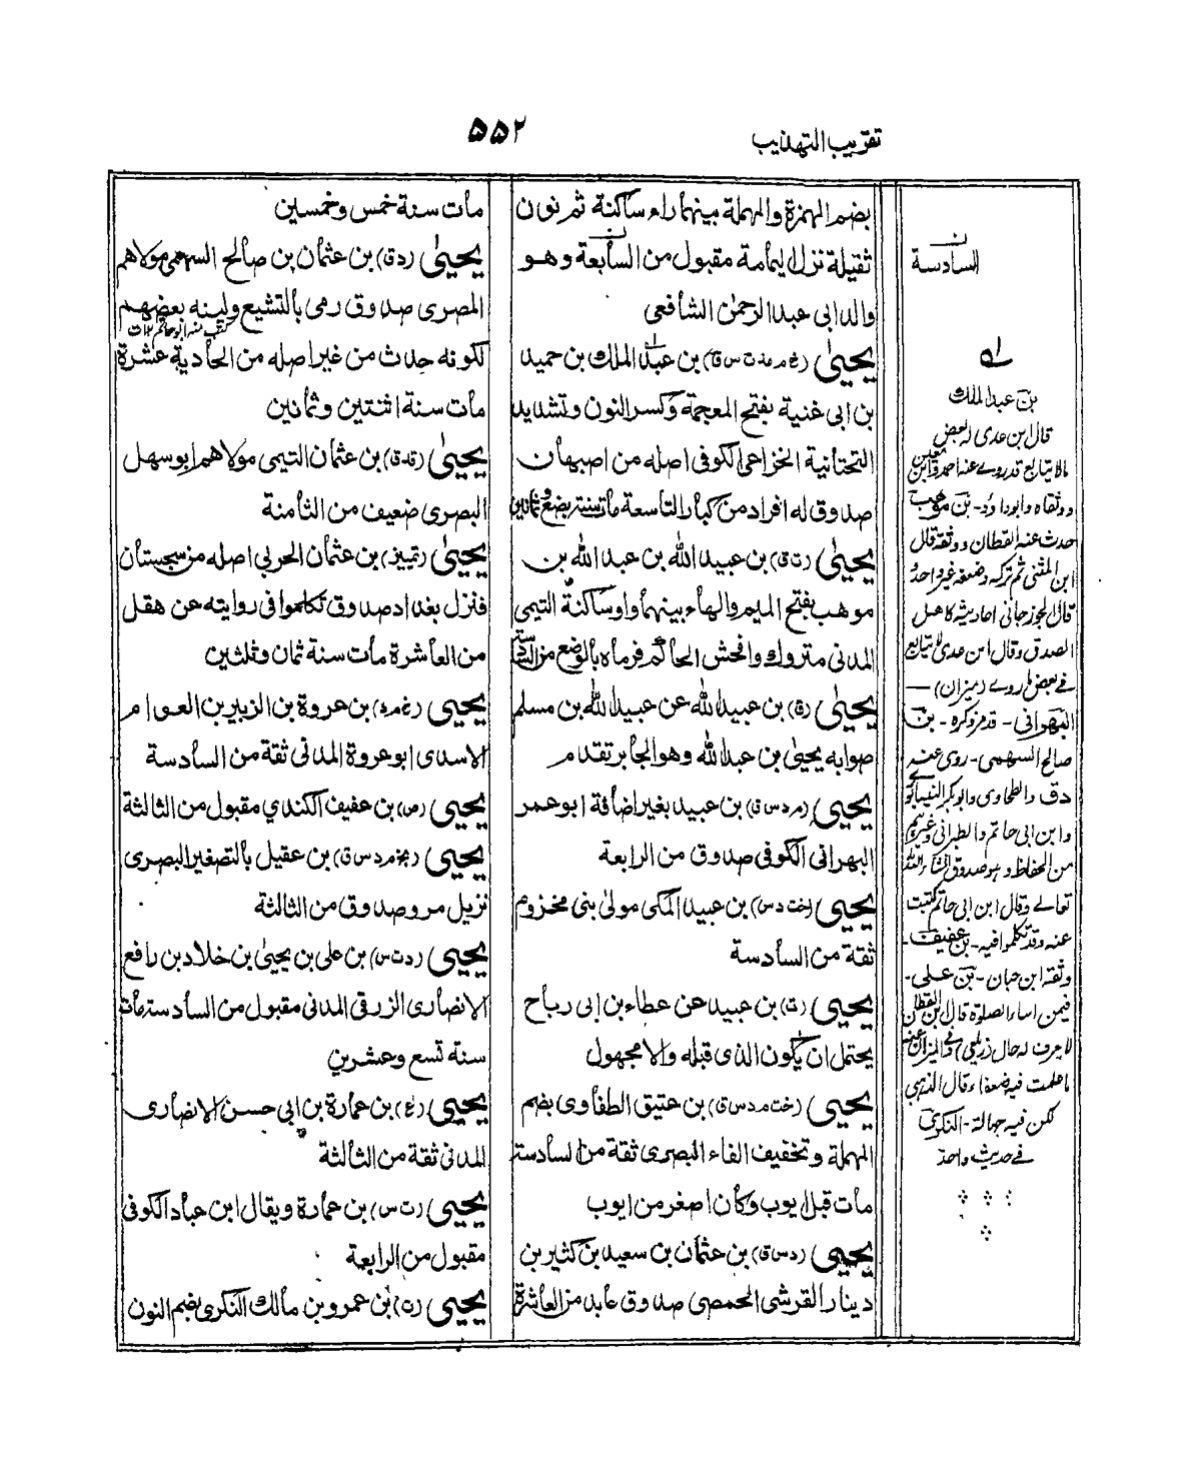 تقريب التهذيب
۵۵۲
بضم الهمزة والمهملة بينهما راء ساكنة ثم نون
ثقيلة نزل اليمامة مقبول من السابعة وهو
والد ابى عبد الرحمٰن الشافعى
يحيىٰ (خ م مد ت س ق) بن عبد الملك بن حميد
بن ابى غنية بفتح المعجمة وكسر النون وتشديد
التحتانية الخزاعى الكوفى اصله من اصبهان
صدوق له افراد من كبار التاسعة مات سنة بضع وثمانين
يحيىٰ (ت ق) بن عبيد الله بن عبد الله بن
موهب بفتح الميم والهاء بينهما واو ساكنة التيمى
المدنى متروك وافحش الحاكم فرماه بالوضع من السادسة
يحيىٰ (ق) بن عبيد الله عن عبيد الله بن مسلم
صوابه يحيىٰ بن عبد الله وهو الجابر تقدم
يحيى (م د س ق) بن عبيد بغير اضافة ابو عمر
البهرانى الكوفى صدوق من الرابعة
يحيى (خت د س) بن عبيد المكى مولىٰ بنى مخزوم
ثقة من السادسة
يحيى (ت) بن عبيد عن عطاء بن ابى رباح
يحتمل ان يكون الذى قبله والا مجهول
يحيى (خت مد س ق) بن عتيق الطفاوى بضم
المهملة وتخفيف الفاء البصرى ثقة من السادسة
مات قبل ايوب وكان اصغر من ايوب
يحيى (د س ق) بن عثمان بن سعيد بن كثير بن
دينار القرشى الحمصى صدوق عابد من العاشرة
مات سنة خمس وخمسين
يحيىٰ (د ق) بن عثمان بن صالح السهمى مولاهم
المصرى صدوق رمى بالتشيع ولينه بعضهم
كتب عنه ابو حاتم
لكونه حدث من غير اصله من الحادية عشرة
مات سنة اثنتين وثمانين
يحيىٰ (قد ق) بن عثمان التيمى مولاهم ابو سهل
البصرى ضعيف من الثامنة
يحيىٰ (تمييز) بن عثمان الحربى اصله من سجستان
فنزل بغداد صدوق تكلموا فى روايته عن هقل
من العاشرة مات سنة ثمان وثلثين
يحيى (خ م د) بن عروة بن الزبير بن العوام
الاسدى ابو عروة المدنى ثقة من السادسة
يحيى (ص) بن عفيف الكندي مقبول من الثالثة
يحيى (بخ م د س ق) بن عقيل بالتصغير البصرى
نزيل مرو صدوق من الثالثة
يحيى (د ت س) بن على بن يحيىٰ بن خلاد بن رافع
الانصارى الزرقى المدنى مقبول من السادسة مات
سنة تسع وعشرين
يحيى (ع) بن عمارة بن ابي حسن الانصارى
المدنى ثقة من الثالثة
يحيى (ت س) بن عمارة ويقال ابن عباد الكوفى
مقبول من الرابعة
يحيى (ت) بن عمرو بن مالك النكرى بضم النون
ن
السادسة
بن عبد الملك
قال ابن عدى له بعض
مالا يتابع قد روى عنه احمد وابن معين
ووثقاه وابو داود - بن موهب
حدث عنه القطان ووثقه قال
ابن المثنى ثم تركه وضعفه غير واحد و
قال الجوزجانى احاديثه كاهل
الصدق وقال ابن عدى لا يتابع
فى بعض ما روى (ميزان) —
البهرانى - قد مر ذكره - بن
صالح السهمى - روى عنه
د ق والطحاوى وابو بكر
وابن ابى حاتم والطبرانى وغيرهم
من الحفاظ وهو صدوق ان شاء الله
تعالى وقال ابن ابى حاتم كتبت
عنه وقد تكلموا فيه - بن عفيف -
وثقه ابن حبان - بن على -
فيمن اساء الصلوة قال ابن القطان
لا يعرف له حال (زيلعى) وفى الميزان
ما علمت فيه ضعفا وقال الذهبى
لكن فيه جهالة - النكرى
فى حديث واحد